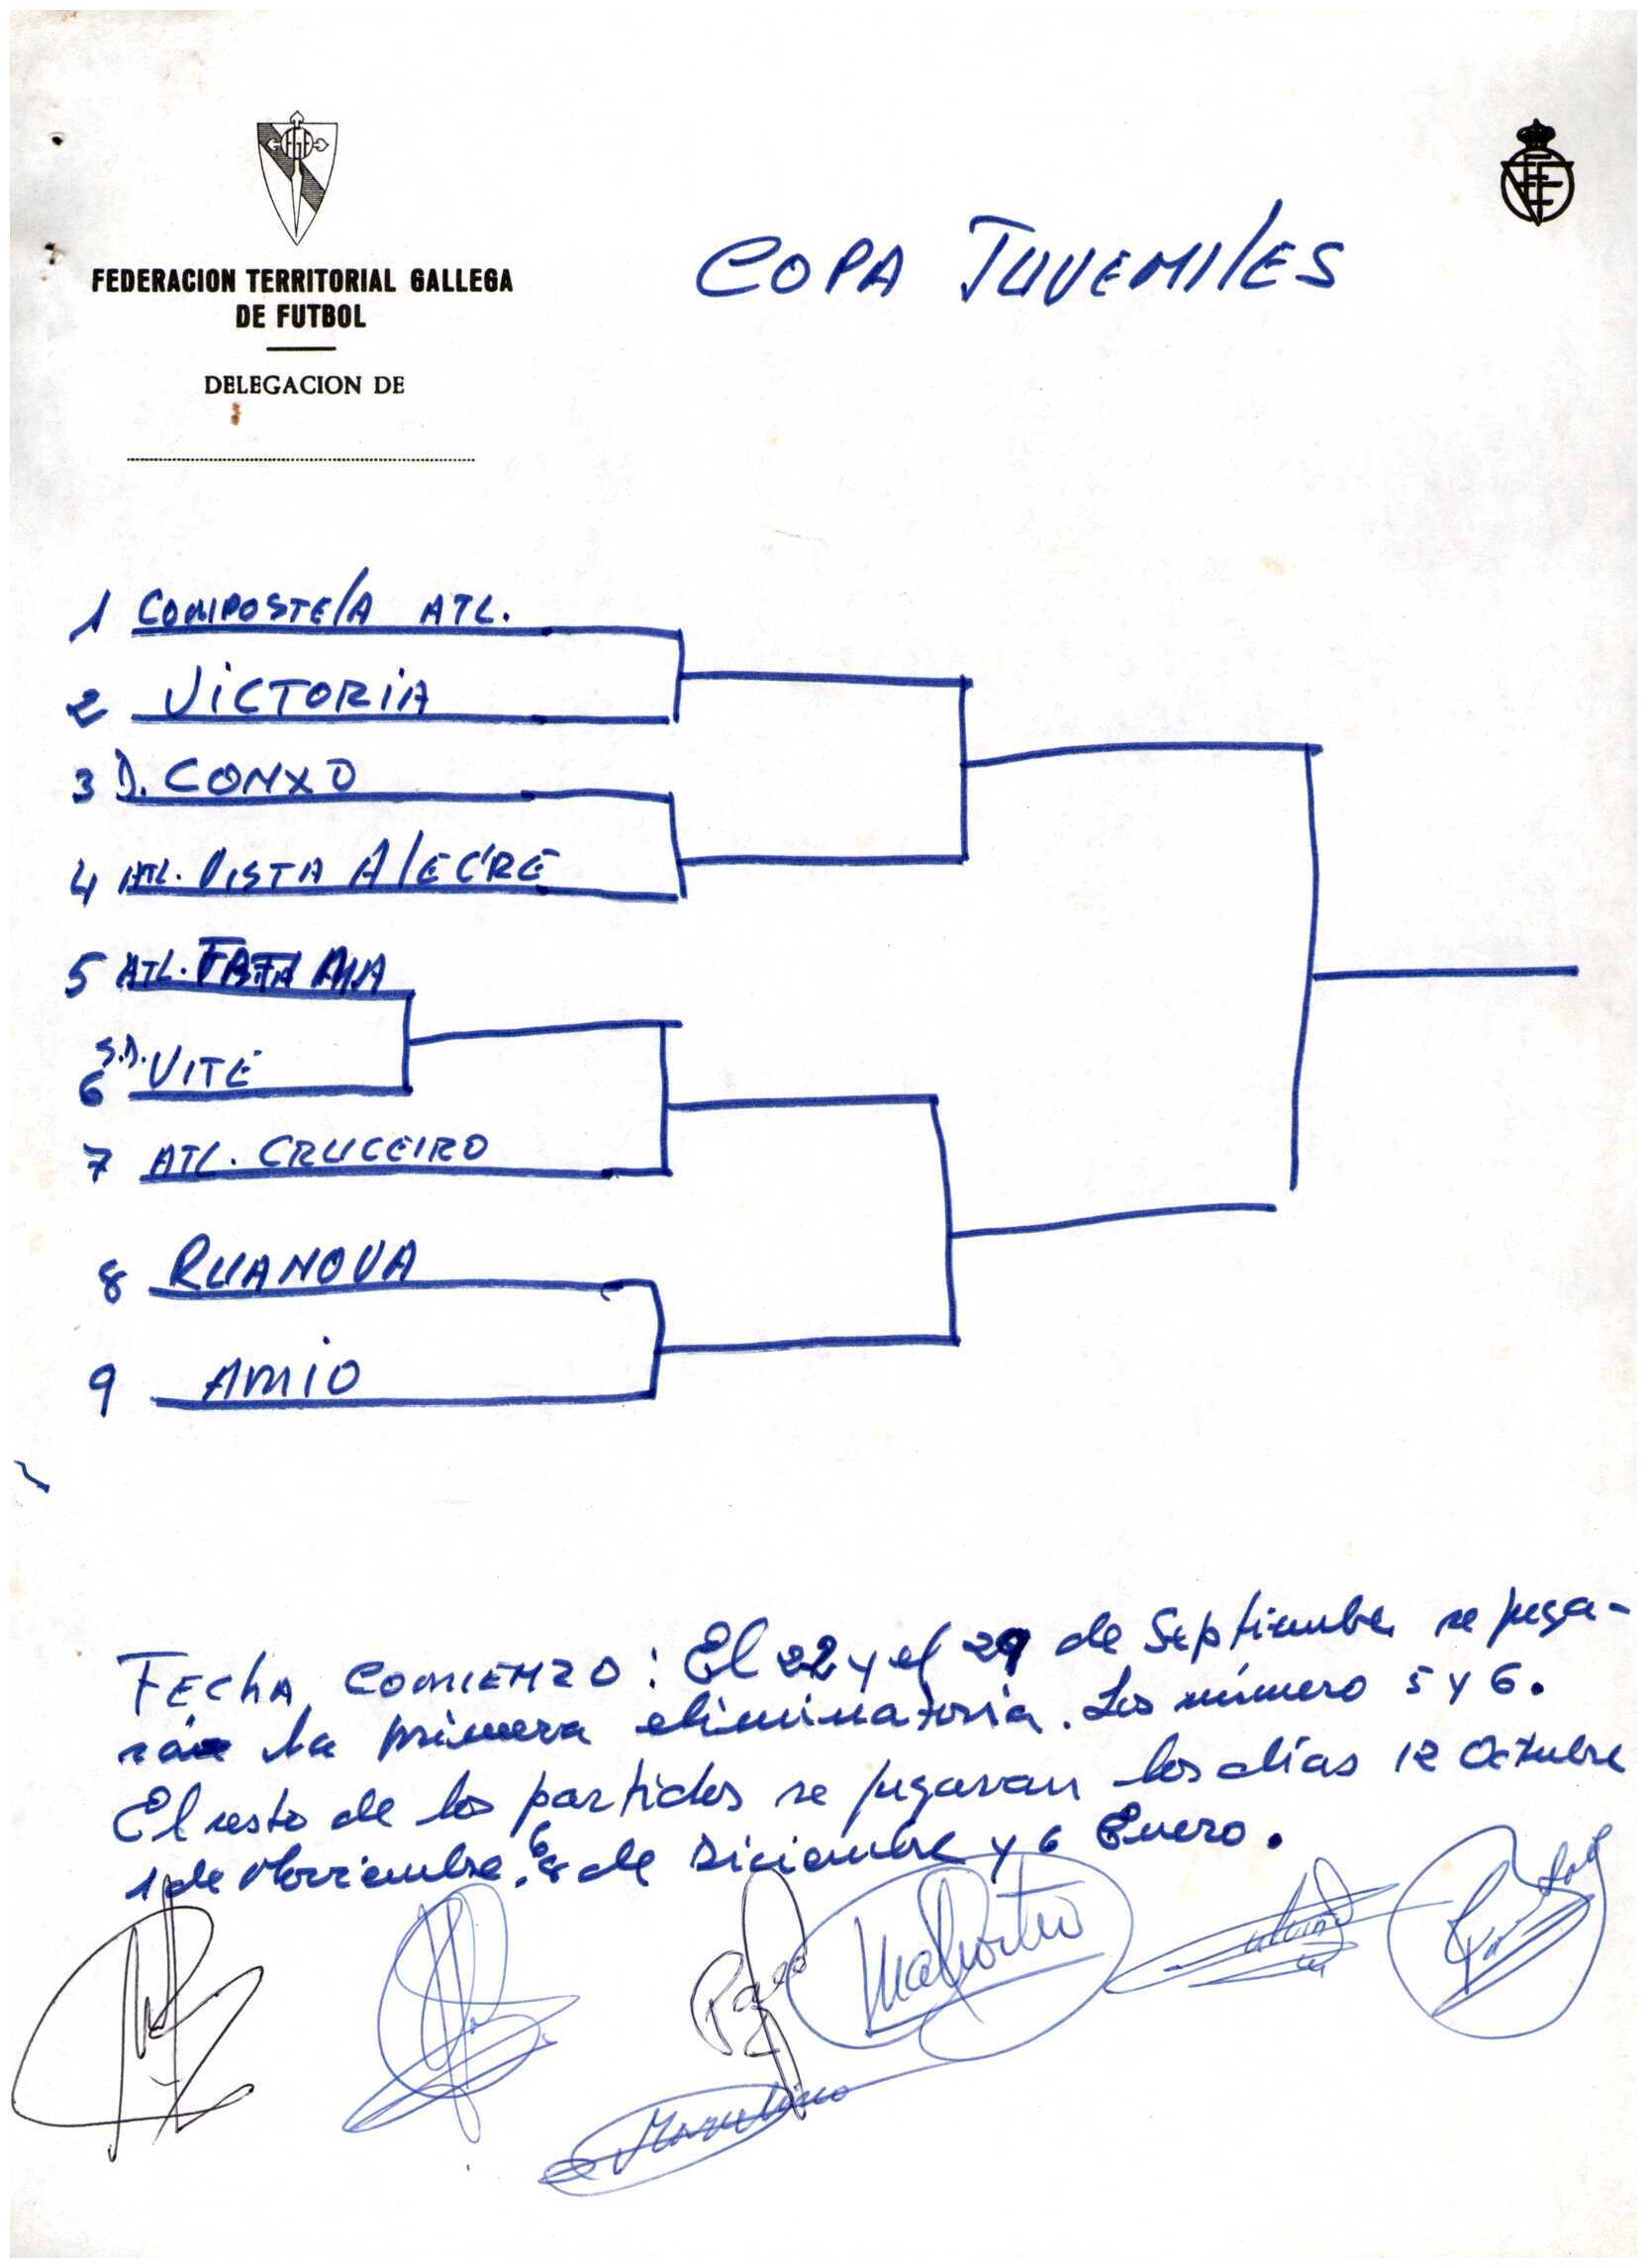 FEDERACION TERRITORIAL GALLEGA
DE FUTBOL
DELEGACION DE
COPA JUVENILES
1 COMPOSTELA ATL.
2 VICTORIA
3 D. CONXO
4 ATL. VISTA ALEGRE
5 ATL. FATIMA
6 S.D. VITE
7 ATL. CRUCEIRO
8 RUANOVA
9 AMIO
FECHA COMIENZO: El 22 y el 29 de Septiembre se juga-
rán la primera eliminatoria. Los número 5 y 6.
El resto de los partidos se jugaran los días 12 Octubre
1 de Noviembre. 6 8 de Diciembre y 6 Enero.